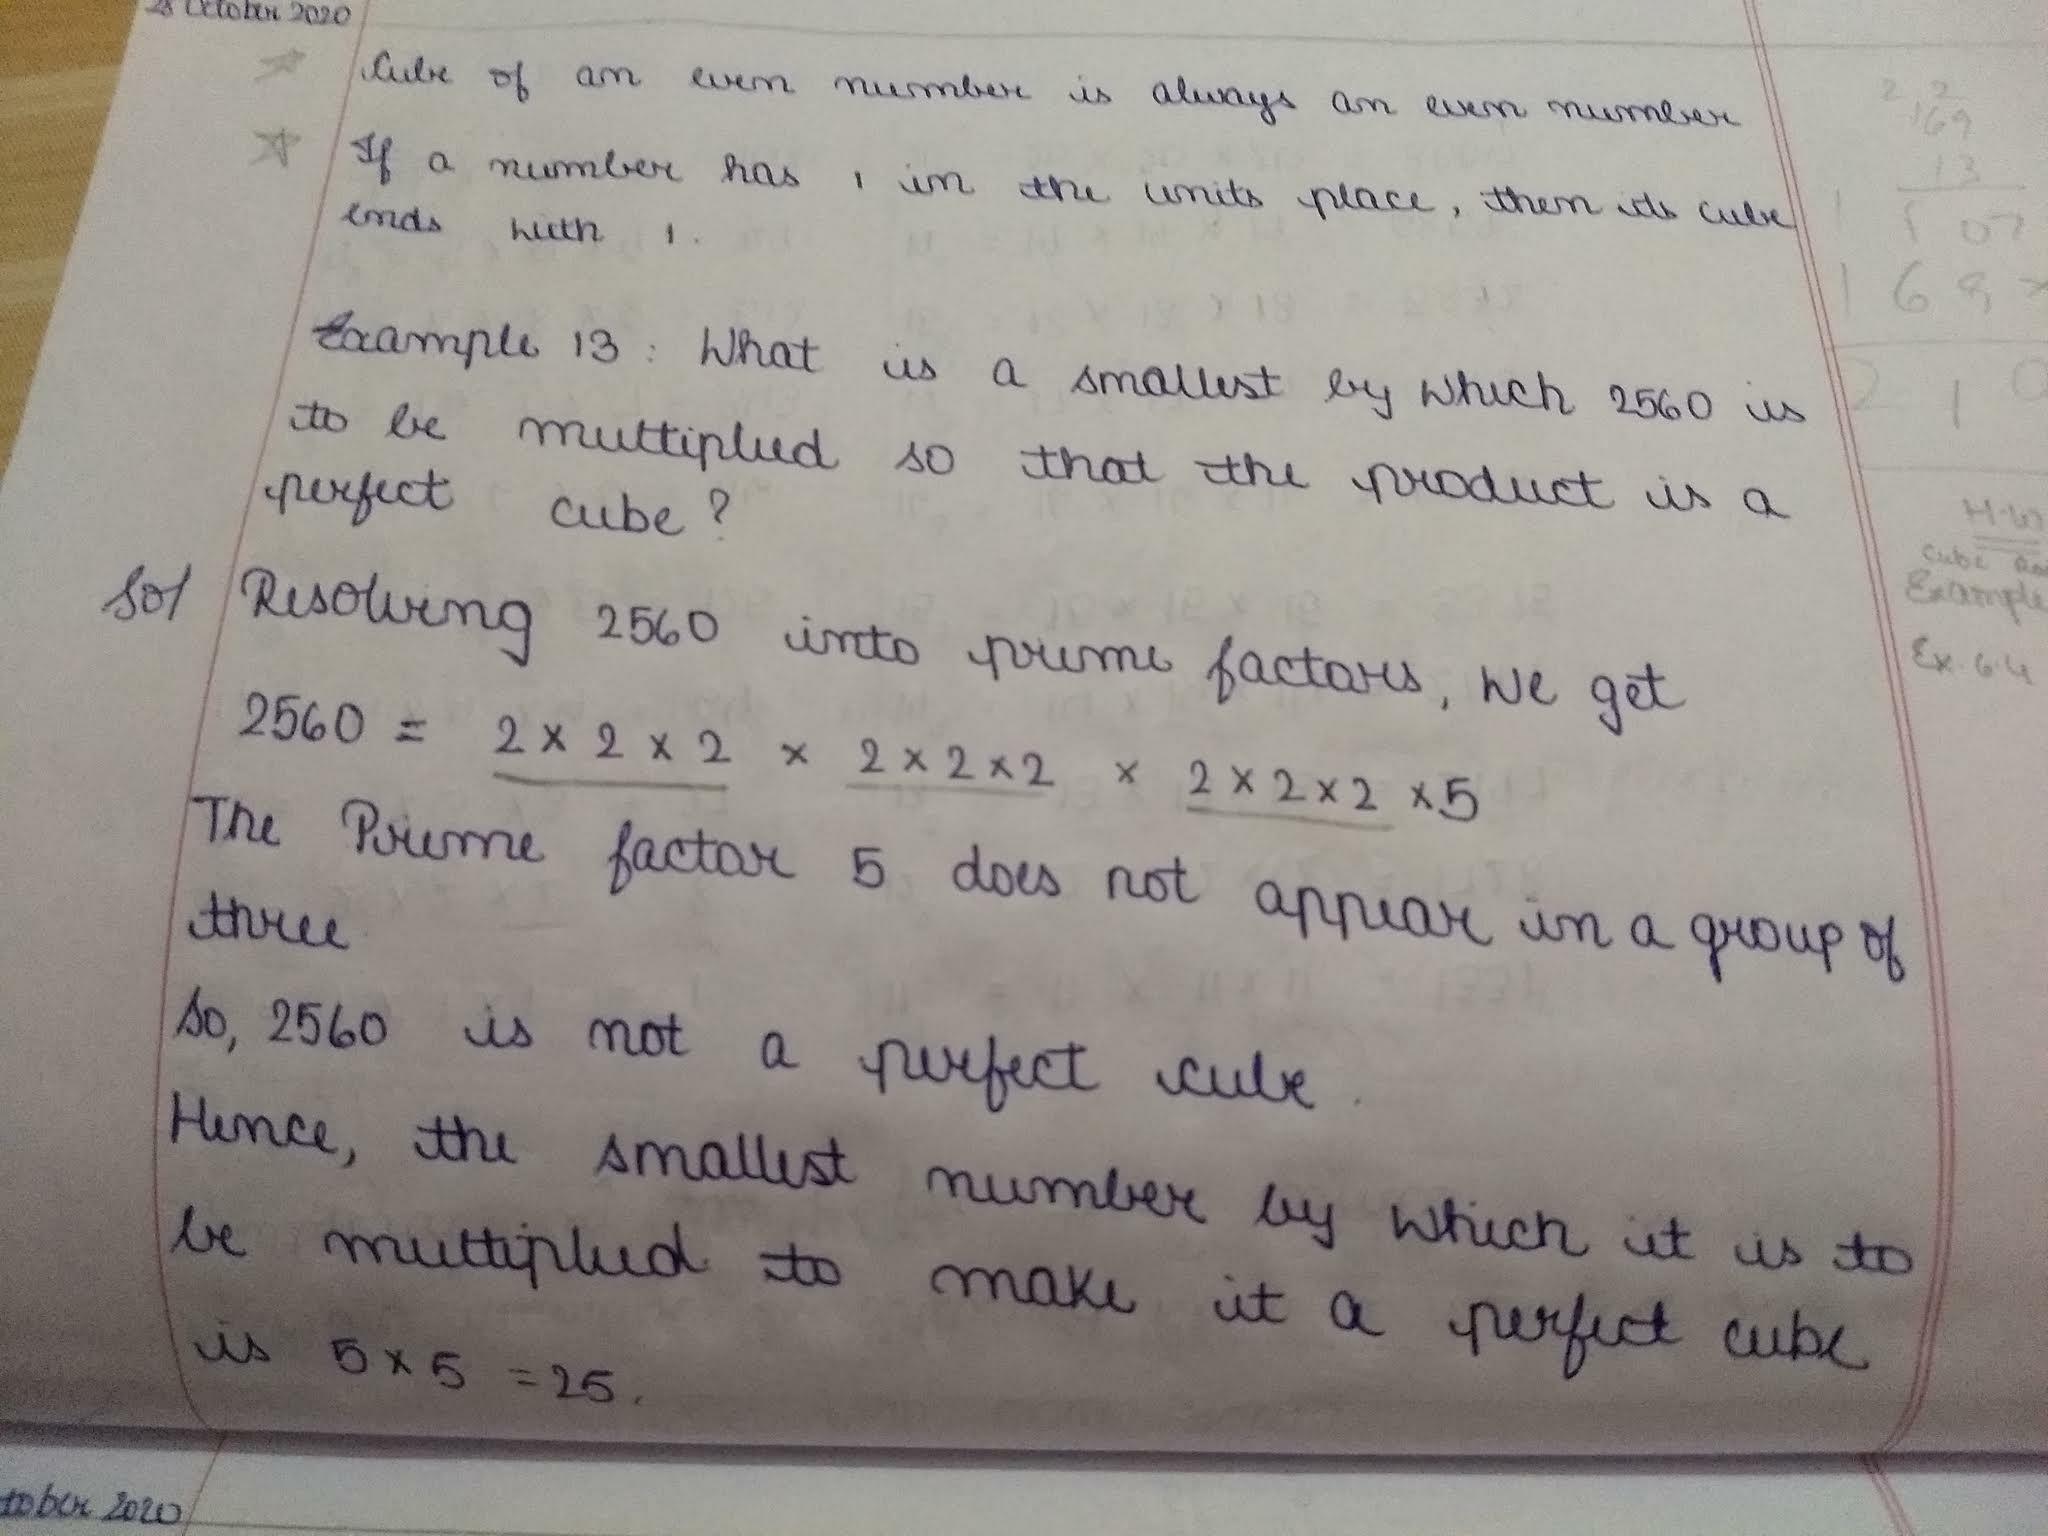 28 October 2020
Cube of an even number is always an even number
If a number has 1 in the units place, then its cube
ends with 1.
Example 13: What is a smallest by which 2560 is
to be multiplied so that the product is a
perfect cube?
Sol Resolving 2560 into prime factors, we get
2560 = 2 × 2 × 2 × 2 × 2 × 2 × 2 × 2 × 2 × 5
The Prime factor 5 does not appear in a group of
three
So, 2560 is not a perfect cube.
Hence, the smallest number by which it is to
be multiplied to make it a perfect cube
is 5 × 5 = 25.
2 2
169
13
507
169×
2 1
H.W
cube
Example
Ex. 6.4
tober 2020